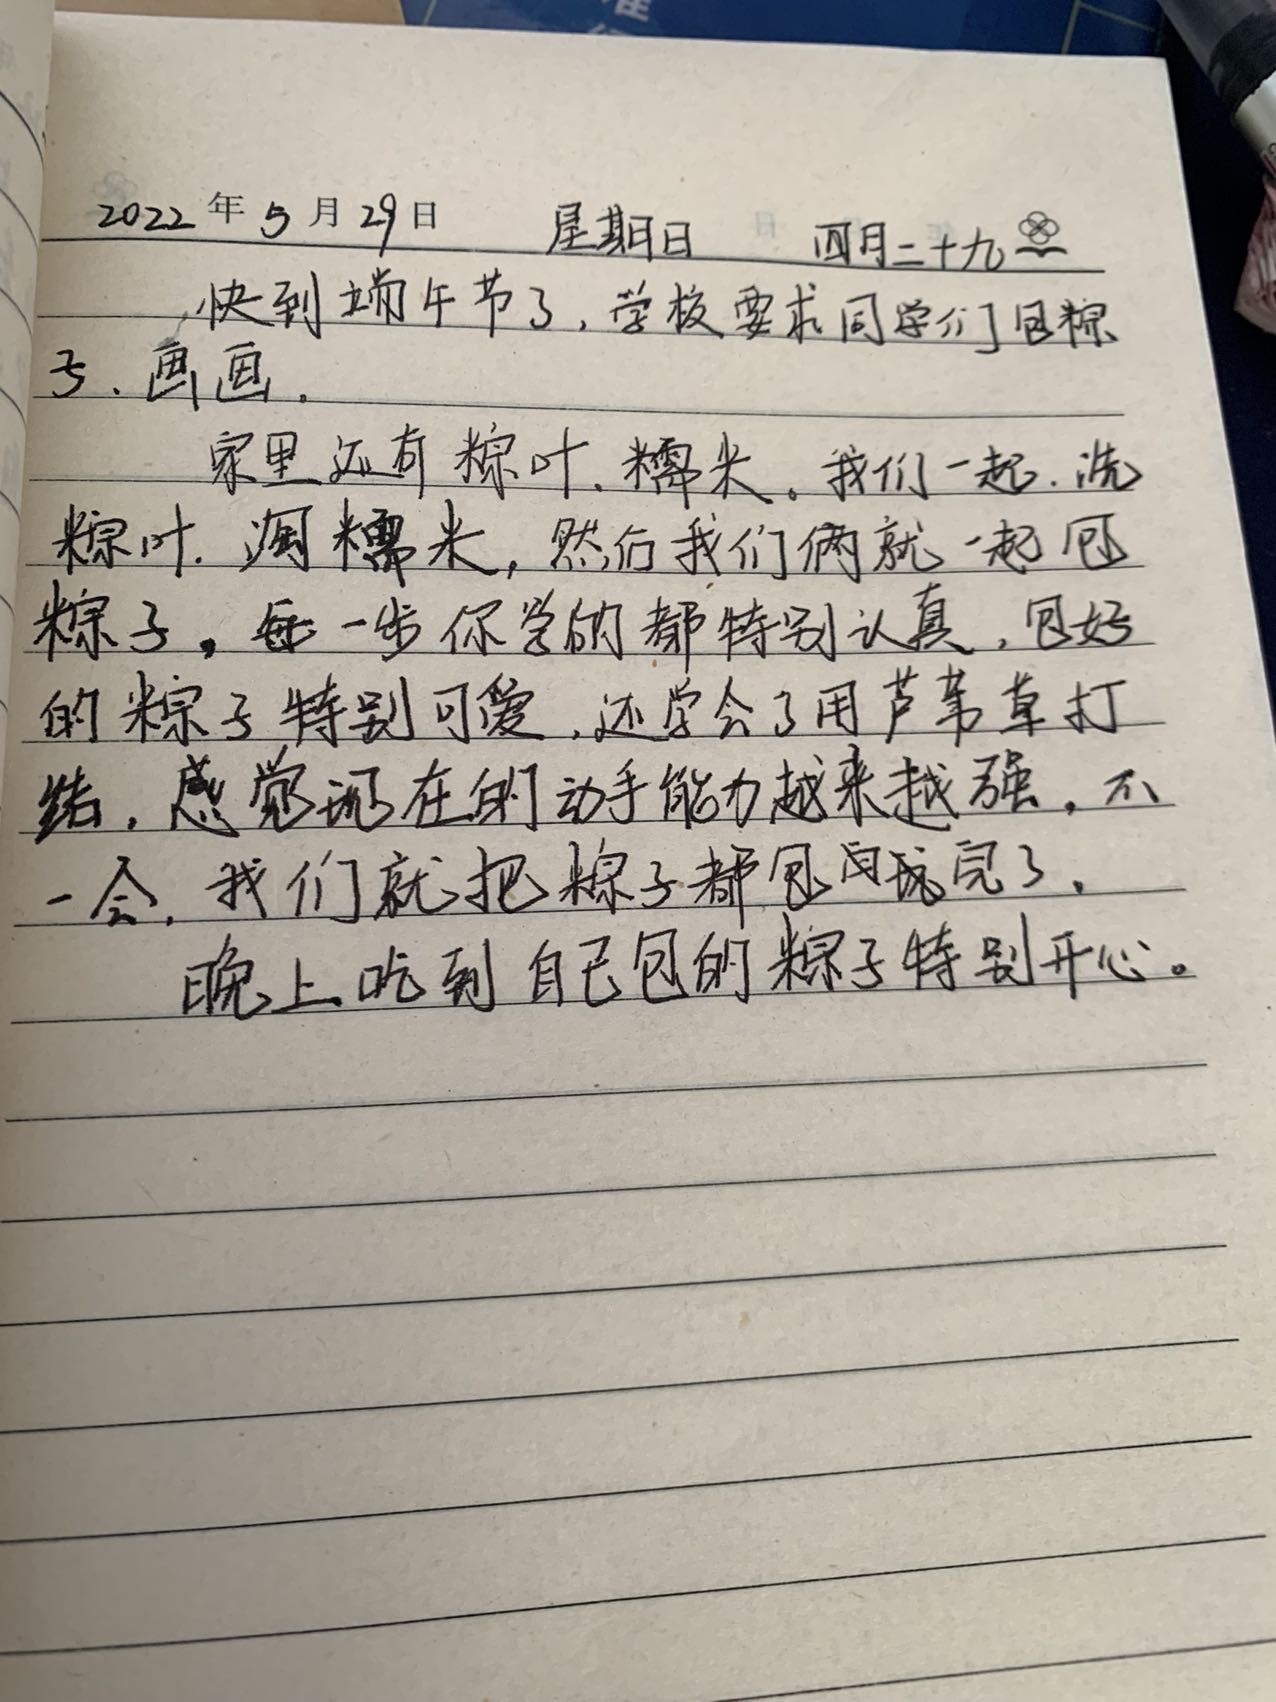 2022年5月29日 星期日 四月二十九
快到端午节了，学校要求同学们包粽
子、画画．
家里还有粽叶、糯米。我们一起．洗
粽叶．淘糯米，然后我们俩就一起包
粽子。每一步你学的都特别认真，包好
的粽子特别可爱．还学会了用芦苇草打
结．感觉现在的动手能力越来越强．不
一会．我们就把粽子都包完了．
晚上吃到自己包的粽子特别开心。